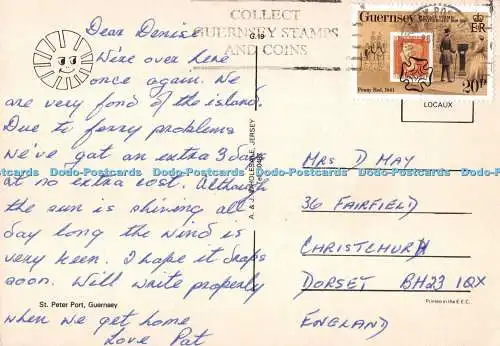 Dear Denise
We're over here
once again. We
are very fond of the island.
Due to ferry problems
we've got an extra 3 days
at no extra cost. Although
the sun is shining all
day long the wind is
very keen. I hope it drops
soon. Will write properly
St. Peter Port, Guernsey
when we get home
Love Pat
COLLECT
GUERNSEY STAMPS
AND COINS
G.19
A. & J. WHOLESALE, JERSEY
Guernsey
Penny Red, 1841
20p
LOCAUX
Mrs D May
36 Fairfield
Christchurch
Dorset BH23 1QX
England
Printed in the E.E.C.
Dodo-Postcards Dodo-Postcards Dodo-Postcards Dodo-Postcards